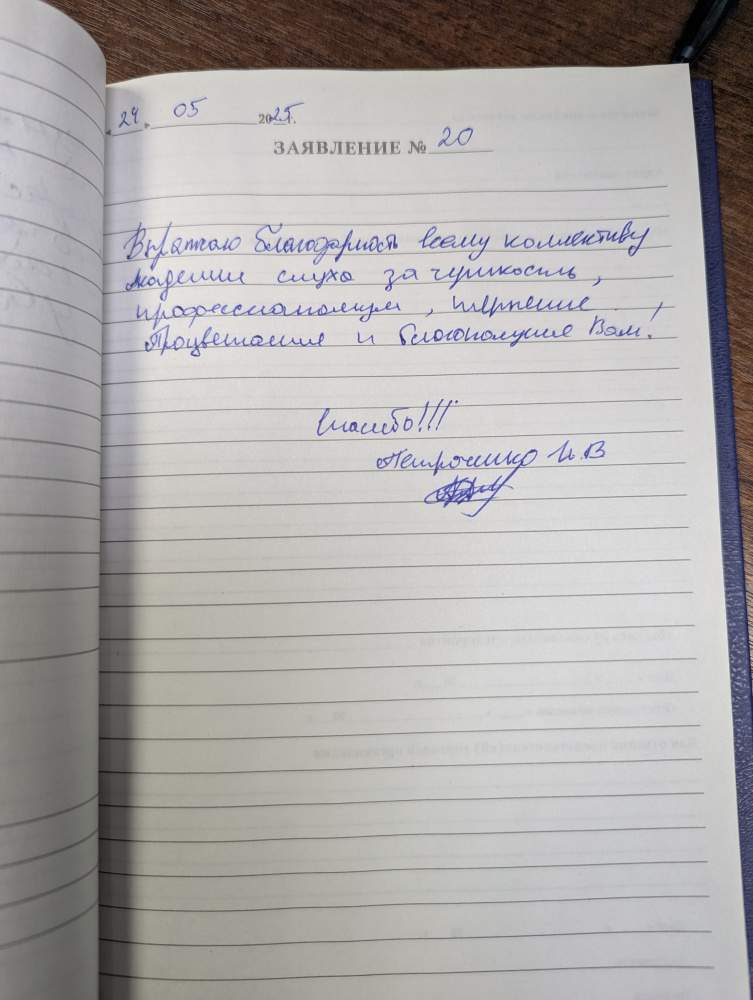 « 24 » 05 2025 г.
ЗАЯВЛЕНИЕ № 20
Выражаю благодарность всему коллективу
Академии слуха за чуткость,
профессионализм, терпение,
Процветания и благополучия Вам!
Спасибо!!!
И.В